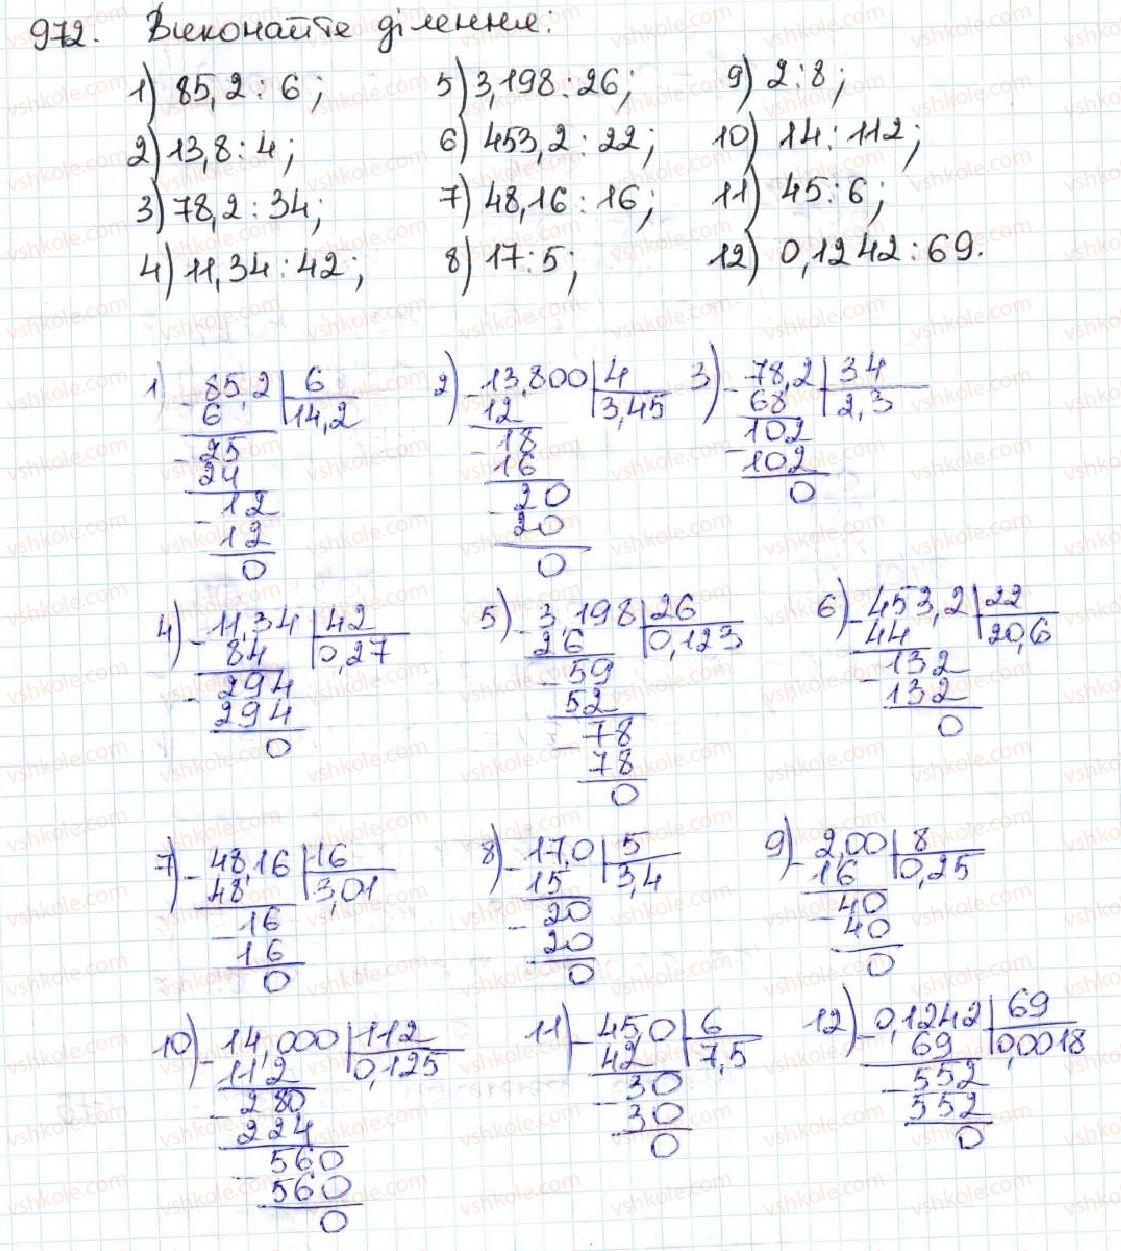 972. Виконайте ділення:
1) 85,2 : 6; 5) 3,198 : 26; 9) 2 : 8;
2) 13,8 : 4; 6) 453,2 : 22; 10) 14 : 112;
3) 78,2 : 34; 7) 48,16 : 16; 11) 45 : 6;
4) 11,34 : 42; 8) 17 : 5; 12) 0,1242 : 69.
1) - 85,2 | 6
6 | 14,2
- 25
24
- 12
12
0
2) - 13,800 | 4
12 | 3,45
- 18
16
- 20
20
0
3) - 78,2 | 34
68 | 2,3
- 102
102
0
4) - 11,34 | 42
84 | 0,27
- 294
294
0
5) - 3,198 | 26
26 | 0,123
- 59
52
- 78
78
0
6) - 453,2 | 22
44 | 20,6
- 132
132
0
7) - 48,16 | 16
48 | 3,01
- 16
16
0
8) - 17,0 | 5
15 | 3,4
- 20
20
0
9) - 2,00 | 8
16 | 0,25
- 40
40
0
10) - 14,000 | 112
112 | 0,125
- 280
224
- 560
560
0
11) - 45,0 | 6
42 | 7,5
- 30
30
0
12) - 0,1242 | 69
69 | 0,0018
- 552
552
0
vshkole.com